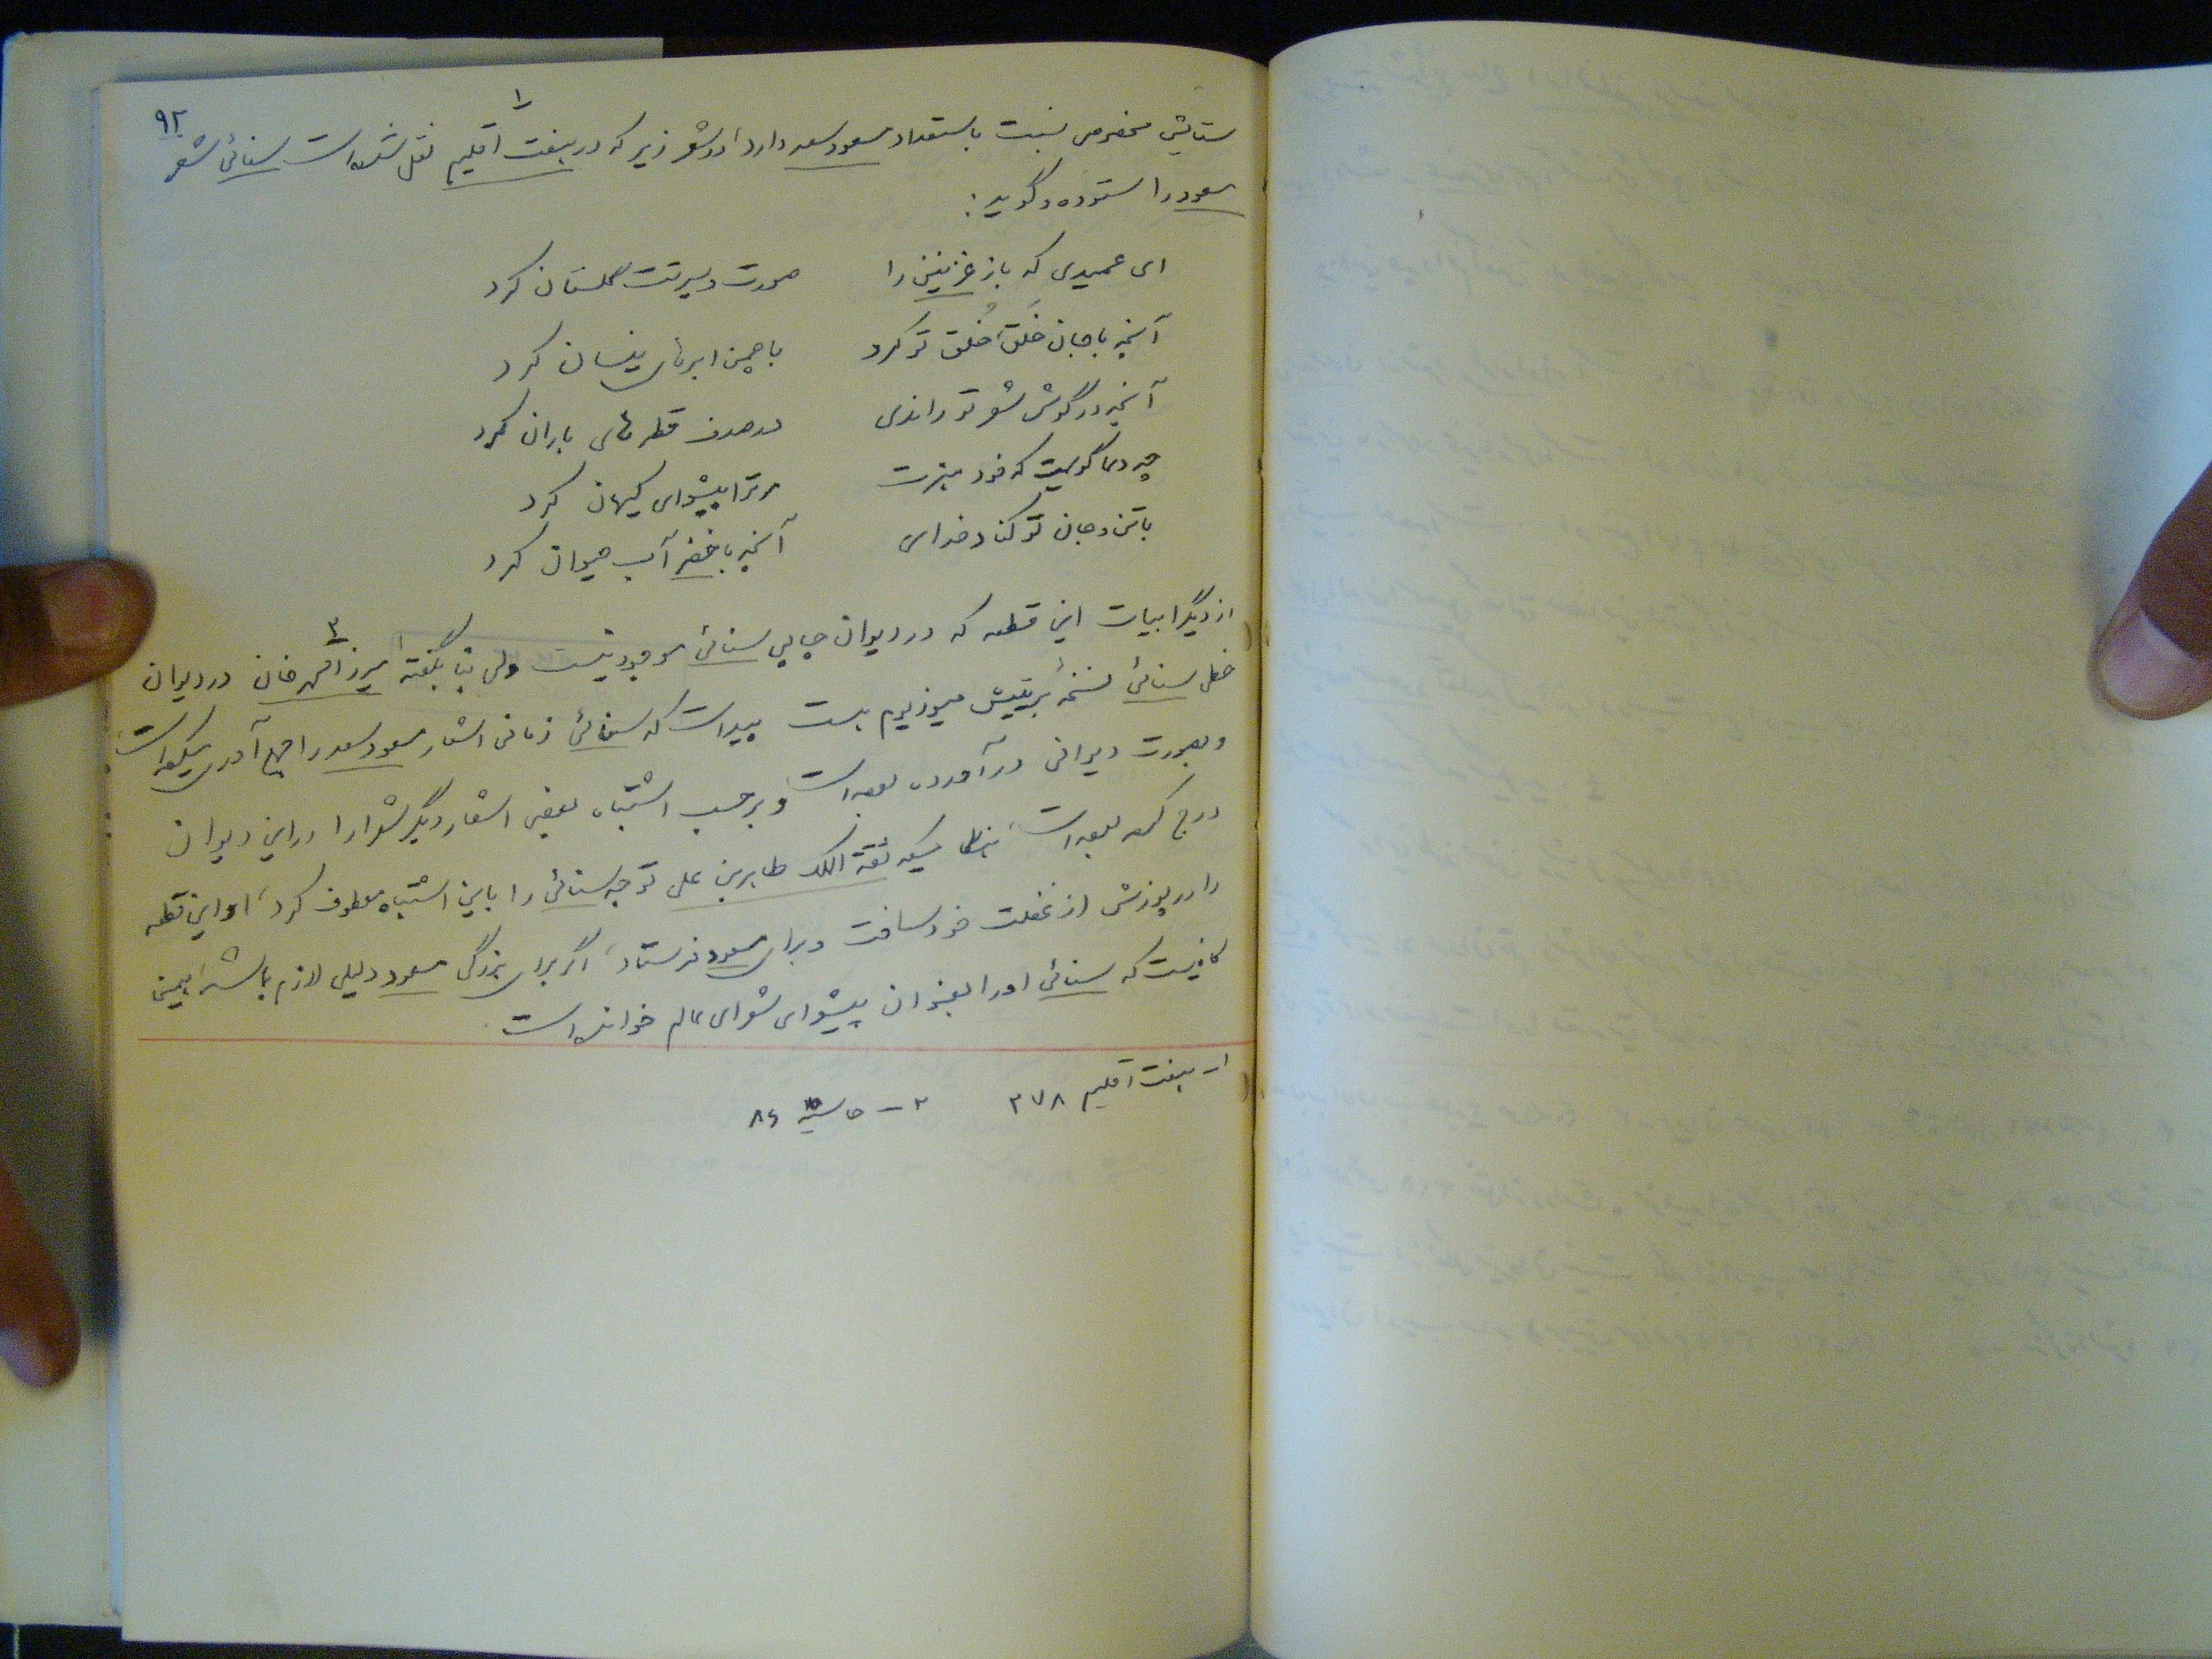 ۹۲
ستایش مخصوص نسبت باستعداد مسعود سعد دارد در شعر زیر که در هفت اقلیم ۱ نقل شده است سنائی شعر
مسعود را ستوده و گوید:
ای عمیدی که باز غزنین را صورت و سیرتت گلستان کرد
آنچه با جان خَلق، خُلق تو کرد با چمن ابرهای نیسان کرد
آنچه در گوش شعر تو راندی در صدف قطرهای باران کرد
چه دعا گویمت که خود هنرت مر ترا پیشوای کیهان کرد
با تن و جان تو کناد خدای آنچه با خضر آب حیوان کرد
از دیگر ابیات این قطعه که در دیوان چاپی سنائی موجود نیست ولی بنا بگفتهٔ میرزا محمد خان ۲ در دیوان
خطی سنائی نسخهٔ بریتیش میوزیوم هست پیداست که سنائی زمانی اشعار مسعود سعد را جمع آوری میکرده است
و بصورت دیوانی درآورده بوده است و بر حسب اشتباه بعضی اشعار دیگر شعرا را در این دیوان
درج کرده بوده است، هنگامیکه ثقة الملک طاهر بن علی توجه سنائی را باین اشتباه معطوف کرد، او این قطعه
را در پوزش از غفلت خود ساخت و برای مسعود فرستاد، اگر برای بزرگی مسعود دلیلی لازم باشد همین
کافیست که سنائی او را بعنوان پیشوای شعرای عالم خوانده است.
۱- هفت اقلیم ۲۷۸ ۲- حاشیه ۸۶